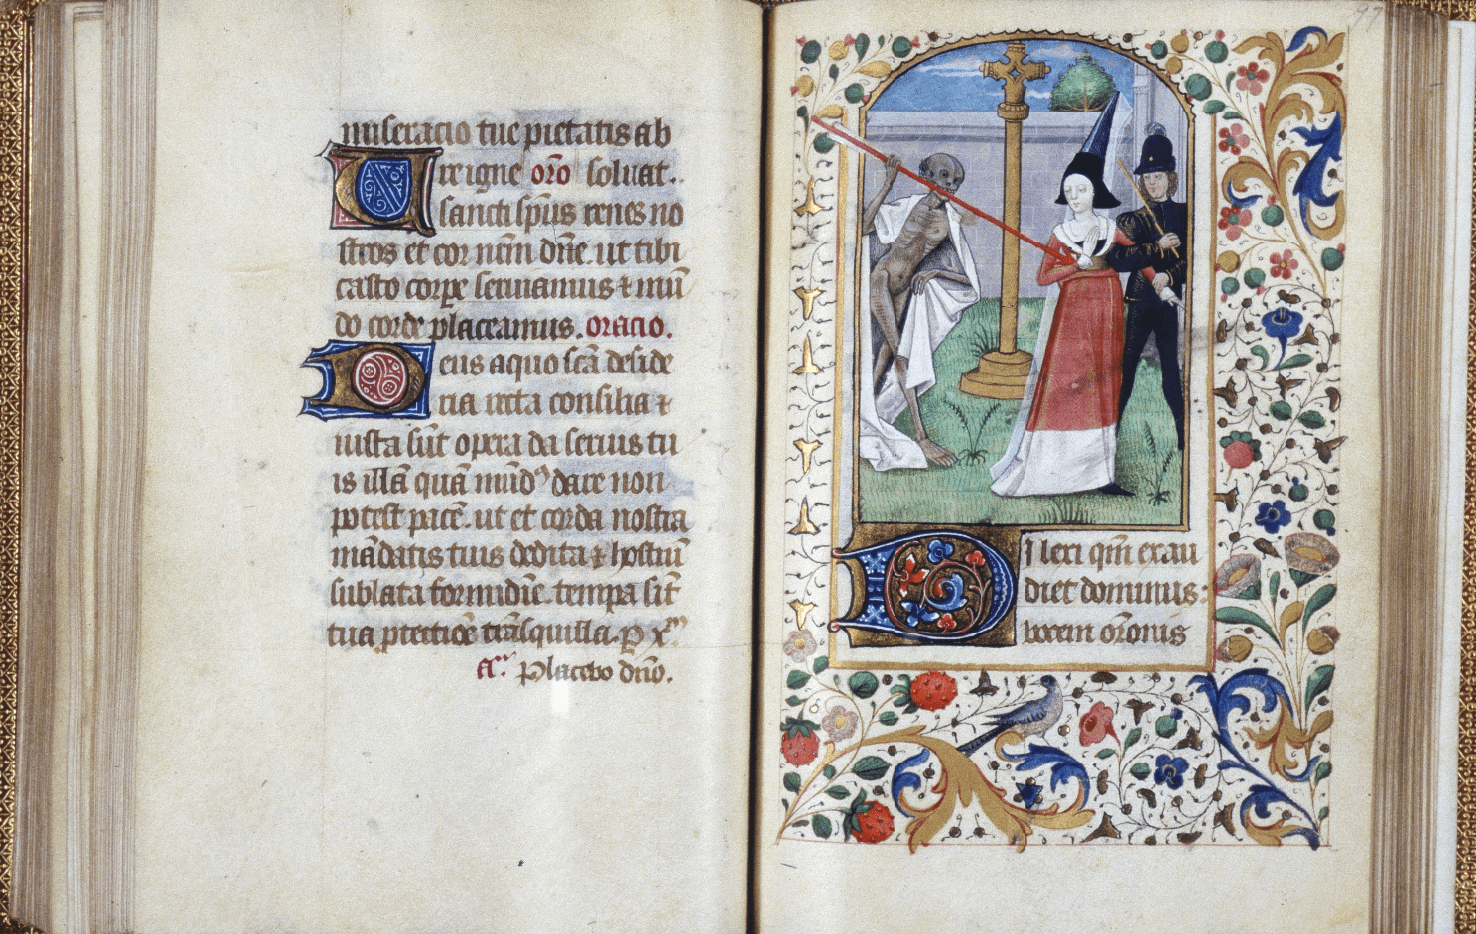 miseracio tue pietatis ab
Ure igne oro̅ soluat.
sancti sp̅us renes no
stros et cor nr̅m dn̅e. ut tibi
casto corpe seruiamus & mu̅
do corde placeamus. oracio.
Deus a quo sc̅a deside
ria recta consilia &
iusta su̅t opera da seruis tu
is illa̅ qua̅ mu̅dꝰ dare non
potest pace̅. ut et corda nostra
ma̅datis tuis dedita & hostiu̅
sublata formidi̅e. tempa si̅t
tua ptectio̅e tra̅squilla. P xm̅
an̅ Placebo dn̅o.
97
Dilexi qm̅ exau
diet dominus:
vocem oro̅nis